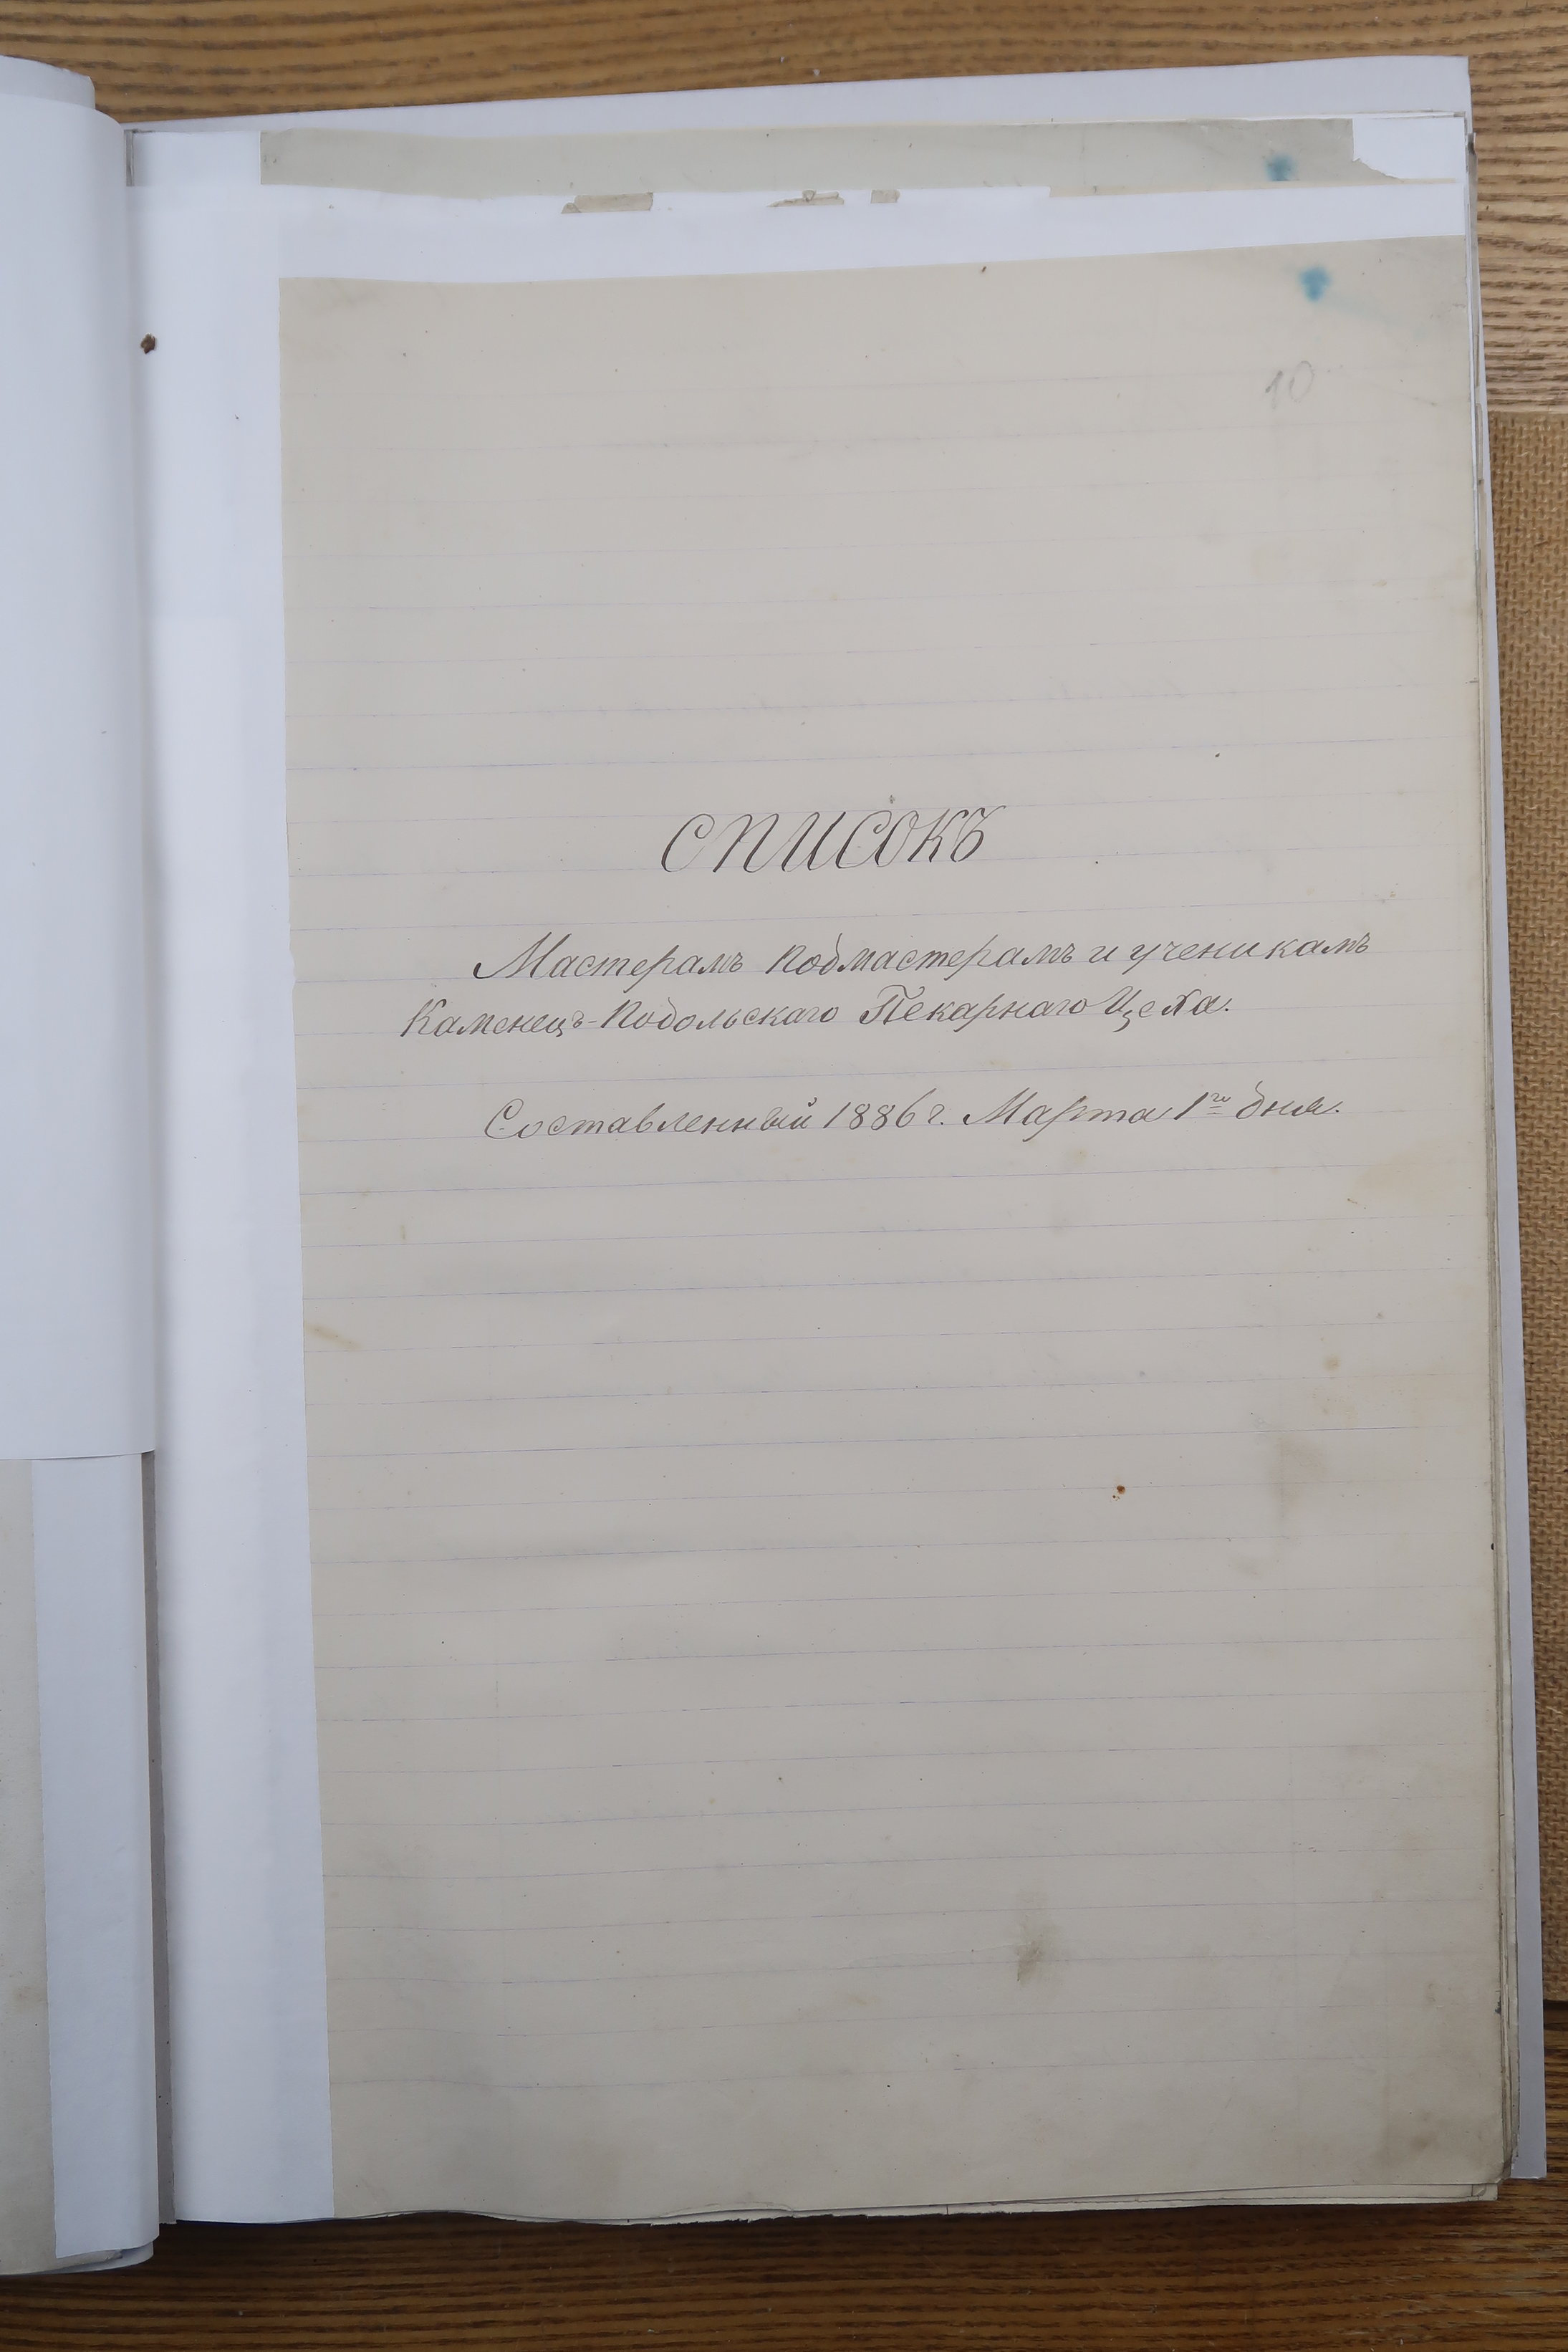 10
СПИСОКЪ
Мастерамъ подмастерамъ и ученикамъ
Каменецъ-Подольскаго Пекарнаго Цеха.
Составленный 1886 г. Марта 1го дня.